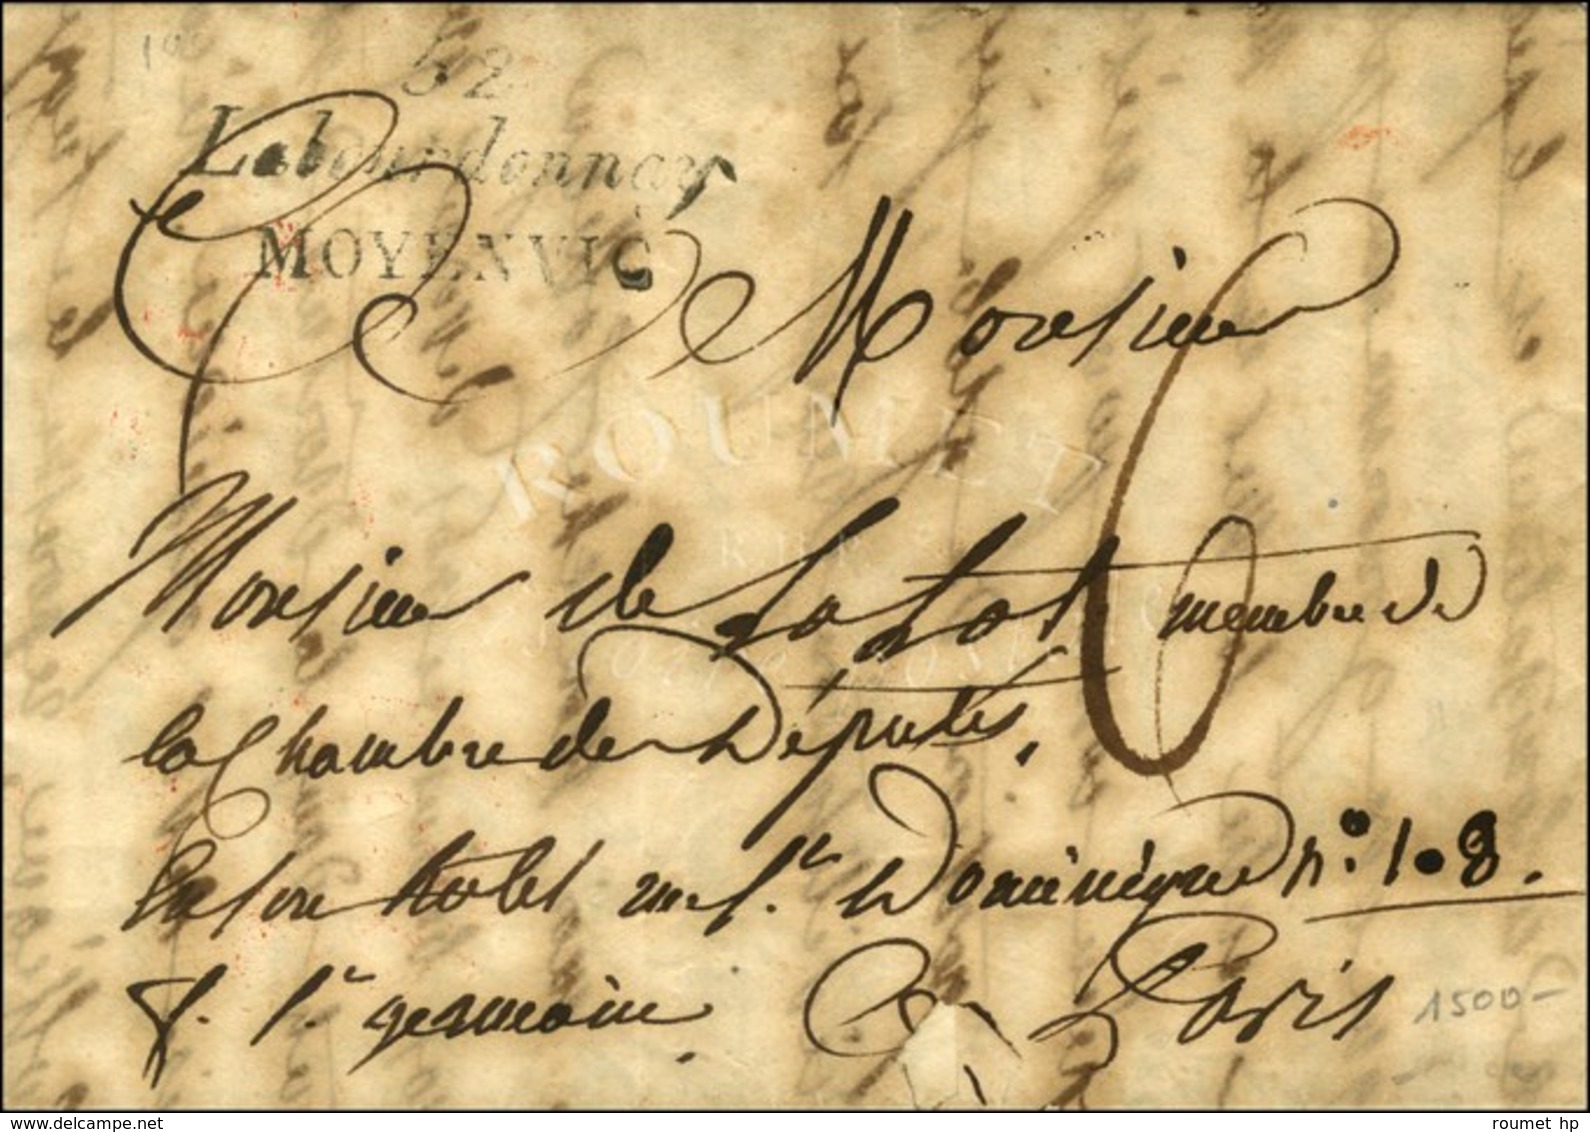 52
Labourdonnay
MOYENVIC
Monsieur
ROUMET
Monsieur de Lalot membre de
la Chambre des Députés,
en son hotel rue St. Dominique n.° 108.
f. St. germain. à Paris
1500-
www.delcampe.net
roumet hp